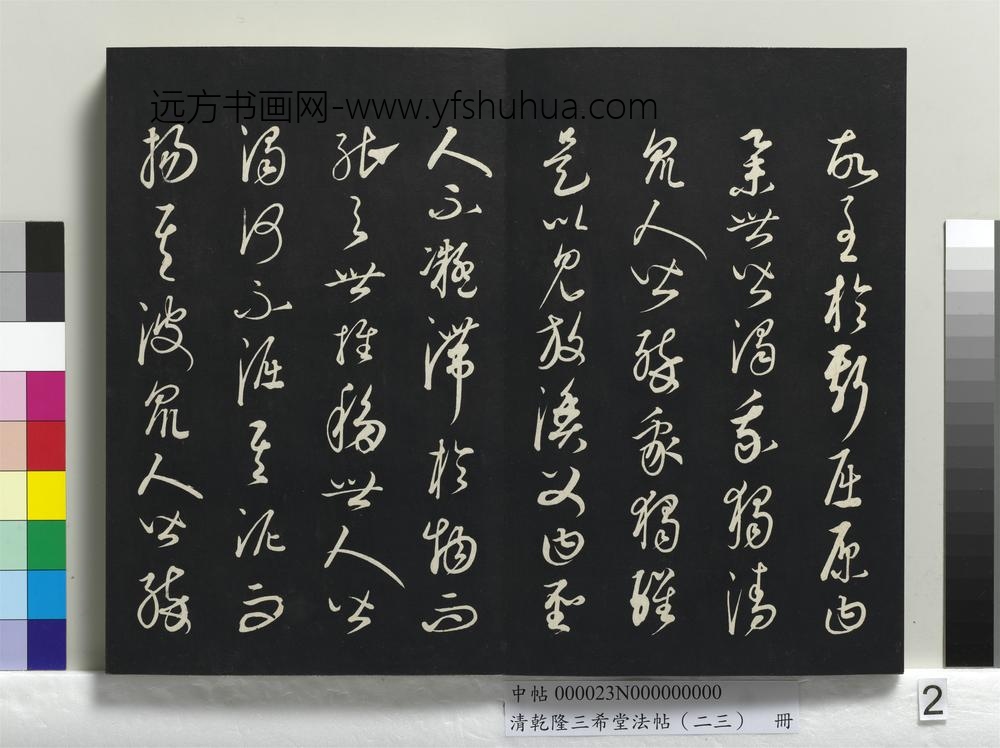 远方书画网-www.yfshuhua.com
故至於斯屈原曰
舉世皆濁我獨清
眾人皆醉我獨醒
是以見放漁父曰聖
人不凝滯於物而
能與世推移世人皆
濁何不淈其泥而
揚其波眾人皆醉
中帖 000023N000000000
清乾隆三希堂法帖（二三） 冊
2